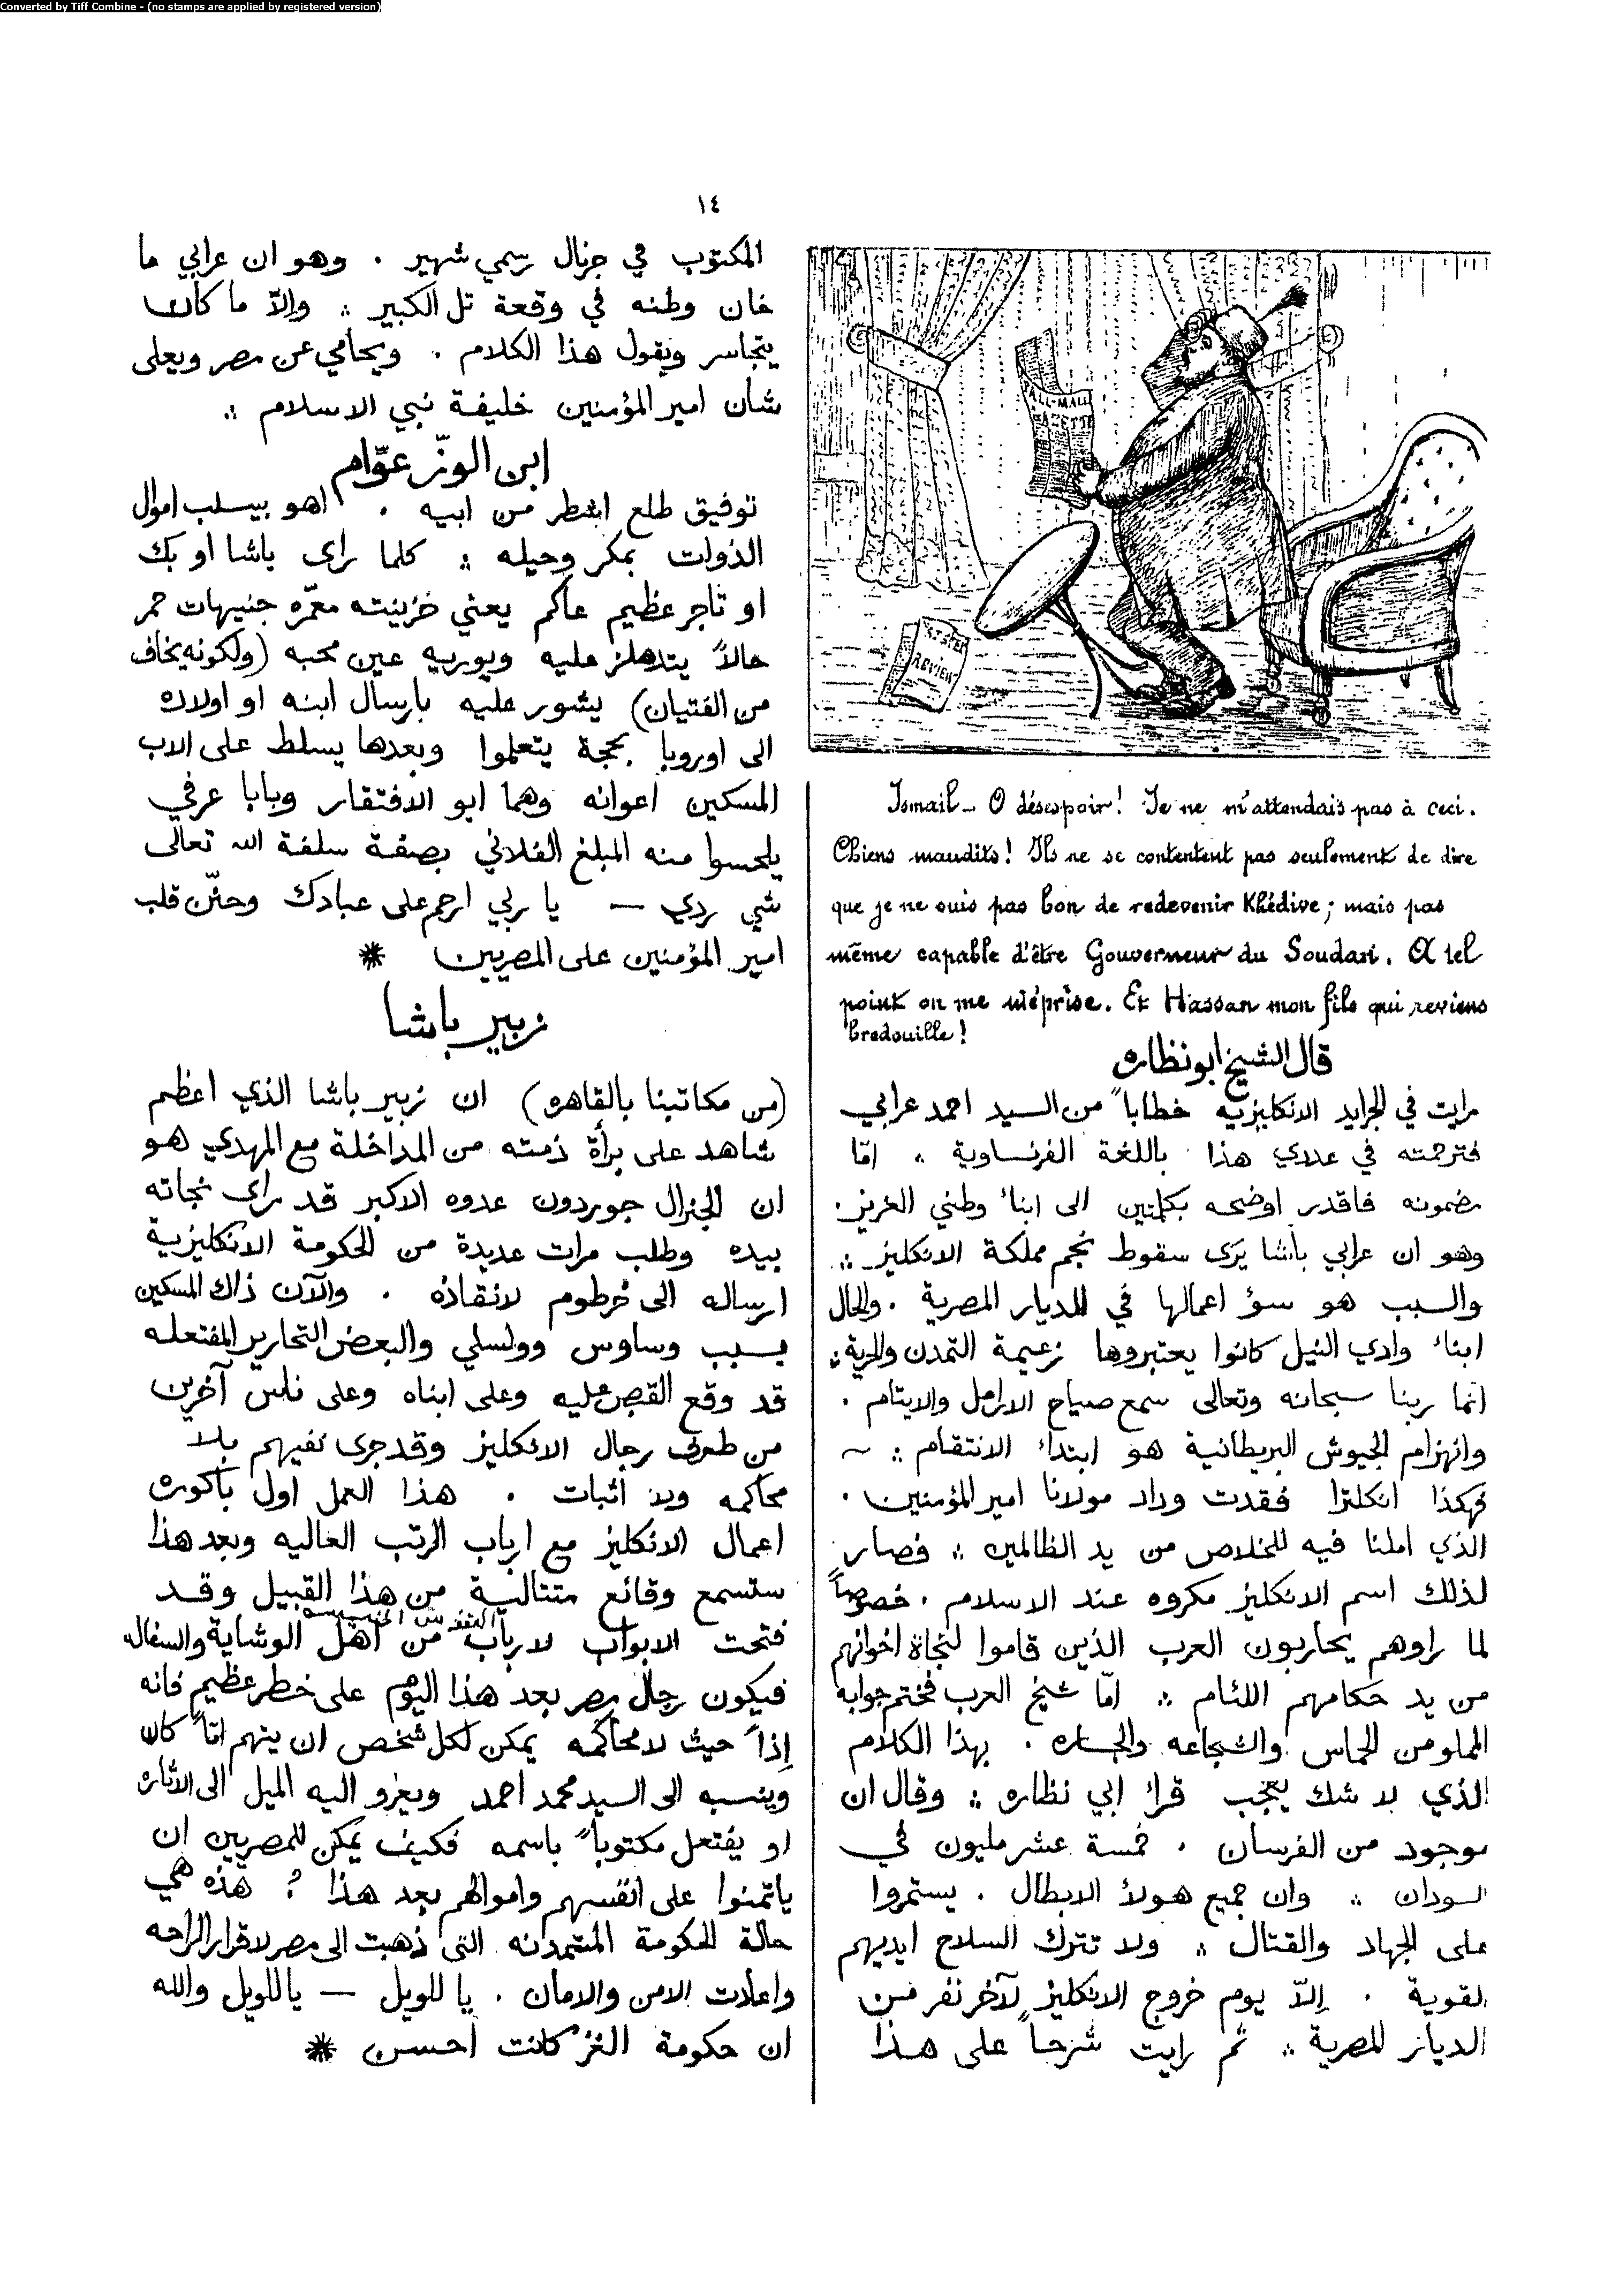 Converted by Tiff Combine - (no stamps are applied by registered version)
١٤
ALL-MALL
GAZETTE
REVIEW
Ismail _ O désespoir! Je ne m'attendais pas à ceci.
Chiens maudits! Ils ne se contentent pas seulement de dire
que je ne suis pas bon de redevenir Khédive; mais pas
même capable d'être Gouverneur du Soudan. A tel
point on me méprise. Et Hassan mon fils qui reviens
bredouille!
قال الشيخ ابو نظاره
رايت في الجرايد الانكليزيه خطاباً من السيد احمد عرابي
فترجمته في عددي هذا باللغة الفرنساوية ؞ امّا
مضمونه فاقدر اوضحه بكلمتين الى ابناء وطني العزيز.
وهو ان عرابي باشا يرى سقوط نجم مملكة الانكليز ؞
والسبب هو سؤ اعمالها في الديار المصرية . والحال
ابناء وادي النيل كانوا يعتبروها زعيمة التمدن والحرية ؞
انما ربنا سبحانه وتعالى سمع صياح الارامل والايتام .
وانهزام الجيوش البريطانية هو ابتداء الانتقام ؞ ~
فهكذا انكلترا فقدت وداد مولانا امير المؤمنين .
الذي املنا فيه للخلاص من يد الظالمين ؞ فصار
لذلك اسم الانكليز مكروه عند الاسلام . خصوصاً
لما راوهم يحاربون العرب الذين قاموا لنجاة اخوانهم
من يد حكامهم اللئام ؞ امّا شيخ العرب فختم جوابه
المملو من الحماس والشجاعه والجساره . بهذا الكلام
الذي لا شك يعجب قراء ابي نظاره ؞ وقال ان
موجود من الفرسان . خمسة عشر مليون في
السودان ؞ وان جميع هولاء الابطال . يستمروا
على الجهاد والقتال ؞ ولا تترك السلاح ايديهم
القوية . إلاّ يوم خروج الانكليز لآخر نفر من
الديار المصرية ؞ ثم رايت شرحاً على هذا
المكتوب في جرنال رسمي شهير . وهو ان عرابي ما
خان وطنه في وقعة تل الكبير ؞ وإلاّ ما كان
يتجاسر ويقول هذا الكلام . ويحامي عن مصر ويعلى
شأن امير المؤمنين خليفة نبي الاسلام ؞
ابن الوزّ عوّام
توفيق طلع اشطر من ابيه . اهو بيسلب اموال
الذوات بمكر وحيله ؞ كلما راى باشا او بك
او تاجر عظيم عاكم يعني خزينته معمّره جنيهات حمر
حالاً يتدهلز عليه ويوريه عين محبه (ولكونه يخاف
من الفتيان) يشور عليه بارسال ابنه او اولاده
الى اوروبا بحجة يتعلموا وبعدها يسلط على الاب
المسكين اعوانه وهما ابو الافتقار وبابا عرفي
يلحسوا منه المبلغ الفلاني بصفة سلفة الله تعالى
شي ردي — يا ربي ارحم على عبادك وحنّن قلب
امير المؤمنين على المصريين *
زبير باشا
(من مكاتبنا بالقاهره) ان زبير باشا الذي اعظم
شاهد على برأة ذمته من المداخلة مع المهدي هو
ان الجنرال جوردون عدوه الاكبر قد راى نجاته
بيده وطلب مرات عديدة من الحكومة الانكليزية
ارساله الى خرطوم لانقاذه . والآن ذاك المسكين
بسبب وساوس وولسلي والبعض التحارير المفتعله
قد وقع القبض عليه وعلى ابناه وعلى ناس آخرين
من طرف رجال الانكليز وقد جرى نفيهم بلا
محاكمه ولا اثبات . هذا العمل اول باكورة
اعمال الانكليز مع ارباب الرتب العاليه وبعد هذا
ستسمع وقائع متتالية من هذا القبيل وقد
فتحت الابواب لارباب النفوس الخبيسه من اهل الوشاية والسفاله
فيكون رجال مصر بعد هذا اليوم على خطر عظيم فانه
إذاً حيث لا محاكمه يمكن لكل شخص ان يتهم ايّاً كان
وينسبه الى السيد محمد احمد ويعزو اليه الميل الى الاثاره
او يفتعل مكتوباً باسمه فكيف يمكن للمصريين ان
ياتمنوا على انفسهم واموالهم بعد هذا ؟ هذه هي
حالة الحكومة المتمدنه التى ذهبت الى مصر لاقرار الراحه
واعلان الامن والامان . يا للويل — يا للويل والله
ان حكومة الغز كانت احسن *